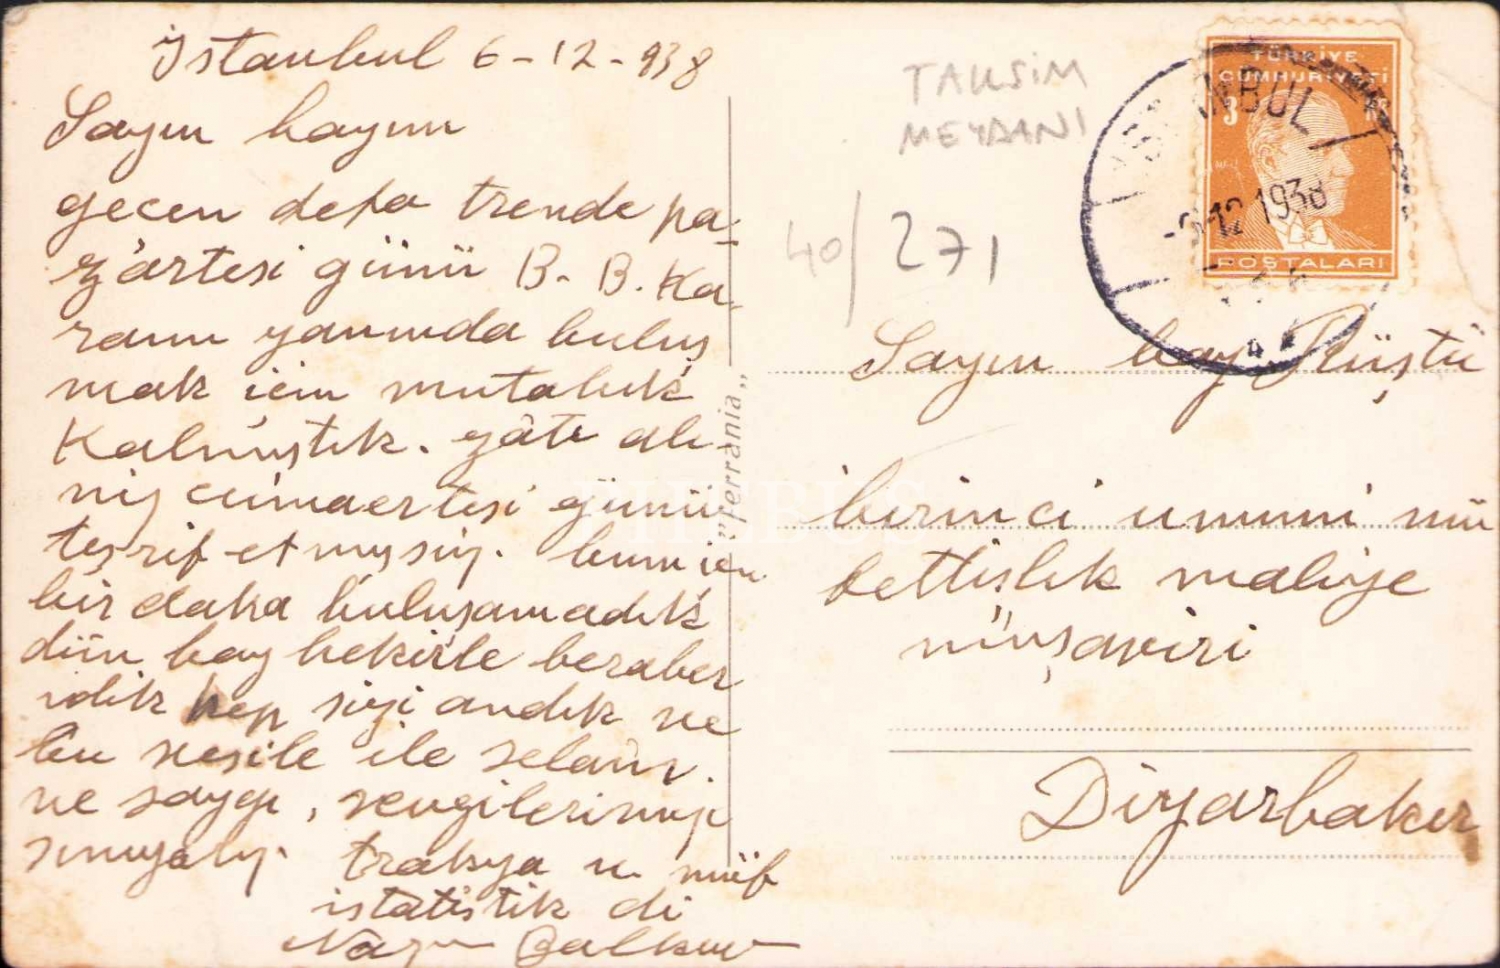 İstanbul 6-12-938
Sayın bayım
geçen defa trende pa-
zartesi günü B. B. Ka-
ranın yanında buluş
mak için mutabık
kalmıştık. zâti âli-
niz cumaertesi günü
teşrif etmişsiz. bunun için
bir daha buluşamadık
dün bay bekirle beraber
idik hep sizi andık ve
bu vesile ile selâm.
ve saygı, sevgilerimizi
sunyalız. trakya u. müf
istatistik di
Balkan
TAKSİM
MEYDANI
40/271
TÜRKİYE
CUMHURİYETİ
3
POSTALARI
İSTANBUL
-6-12 1938
4
"Ferrania"
PHEBUS
Sayın bay Rüştü
birinci umumi mü
fettişlik maliye
müşaviri
Diyarbakır